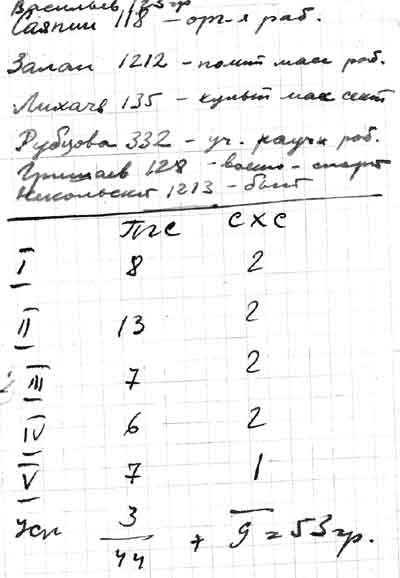 Васильев 125 гр
Саяпин 118 – орг-я раб.
Залан 1212 – полит масс раб.
Лихачв 135 – культ мас сект
Рубцова 332 – уч. научн раб.
Гришаев 128 – военно-спорт
Никольский 1213 – быт
ПГС СХС
I 8 2
II 13 2
III 7 2
IV 6 2
V 7 1
Усп 3
44 + 9 = 53 гр.